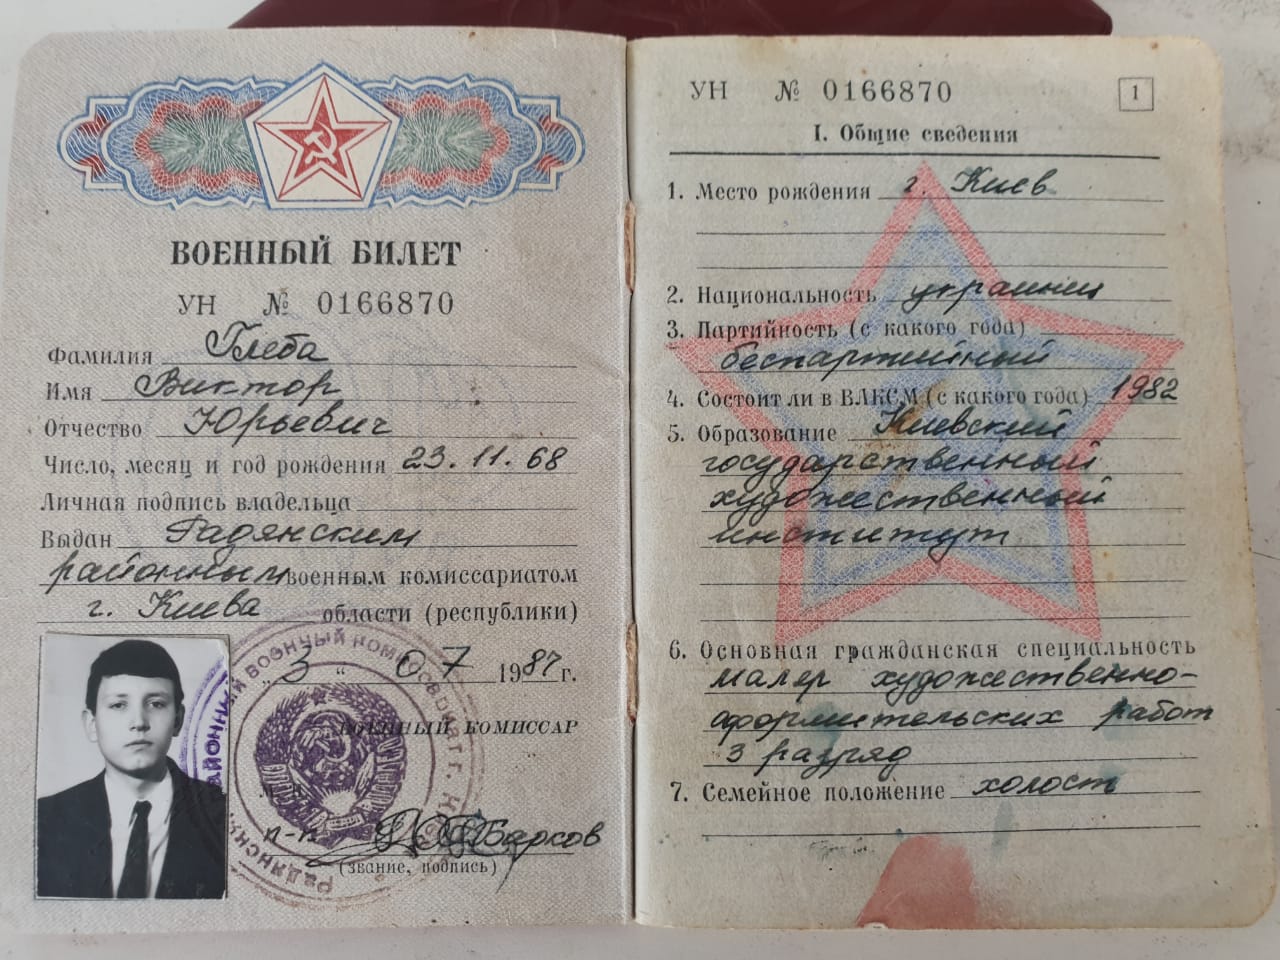 ВОЕННЫЙ БИЛЕТ
УН № 0166870
Фамилия Глеба
Имя Виктор
Отчество Юрьевич
Число, месяц и год рождения 23.11.68
Личная подпись владельца
Выдан Радянским
районным военным комиссариатом
г. Киева области (республики)
„ 3 “ 07 1987 г.
ВОЕННЫЙ КОМИССАР
М. П.
п-п Барков
(звание, подпись)
УН № 0166870
1
I. Общие сведения
1. Место рождения г. Киев
2. Национальность украинец
3. Партийность (с какого года)
беспартийный
4. Состоит ли в ВЛКСМ (с какого года) 1982
5. Образование Киевский
государственный
художественный
институт
6. Основная гражданская специальность
маляр художественно-
оформительских работ
3 разряд
7. Семейное положение холост